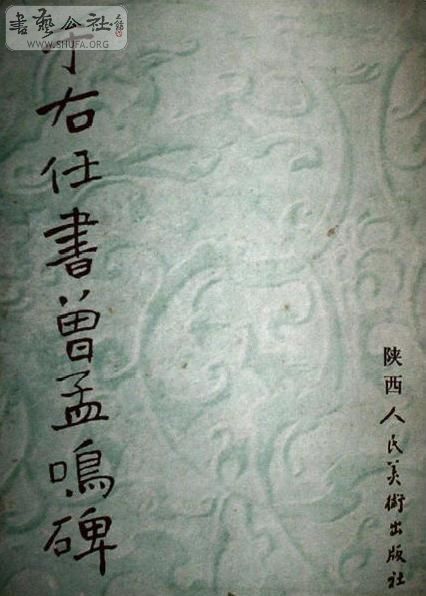 書藝公社
www.SHUFA.ORG
于右任書曾孟鳴碑
陕西人民美術出版社